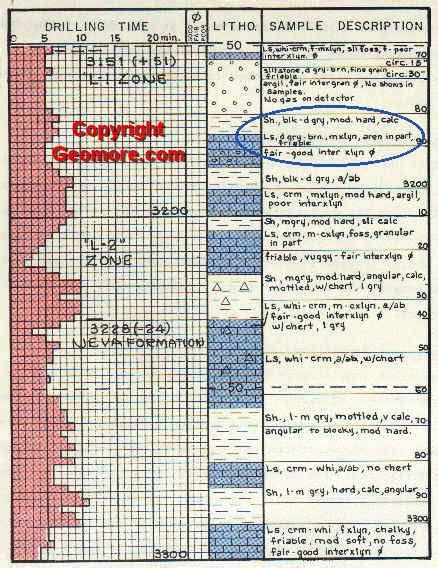 DRILLING TIME
Ø
GOOD
FAIR
POOR
LITHO.
SAMPLE DESCRIPTION
0 5 10 15 20min.
50
3151 (+51)
"L-1" ZONE
Ls, whi-crm, f-mxlyn, sli foss, f-poor
interxlyn. Ø
70
circ. 15"
siltstone, d gry-brn, fine grain
circ. 30"
friable
argil, fair intergran Ø, No shows in
samples.
No gas on detector
80
Copyright
Geomore.com
Sh, blk-d gry, mod. hard, calc
Ls, d gry-brn, mxlyn, aren in part,
friable
90
fair-good inter xlyn Ø
Sh, blk-d gry, a/ab
3200
Ls, crm, mxlyn, mod hard, argil,
poor interxlyn
10
3200
Sh, mgry, mod hard, sli calc
Ls, crm, m-cxlyn, foss, granular
in part
20
"L-2"
ZONE
friable, vuggy-fair interxlyn Ø
Sh, mgry, mod hard, angular, calc,
mottled, w/chert, l gry
30
Ls, whi-crm, m-cxlyn, a/ab
/fair-good interxlyn Ø
40
w/chert, l gry
3228 (-24)
NEVA FORMATION
50
Ls, whi-crm, a/ab, w/chert
50
60
Sh., l-m gry, mottled, v calc,
70
angular to blocky, mod hard.
80
Ls, crm-whi, a/ab, no chert
Sh, l-m gry, hard, calc, angular
90
3300
Ls, crm-whi, fxlyn, chalky,
friable, mod soft, no foss,
fair-good interxlyn Ø
3300